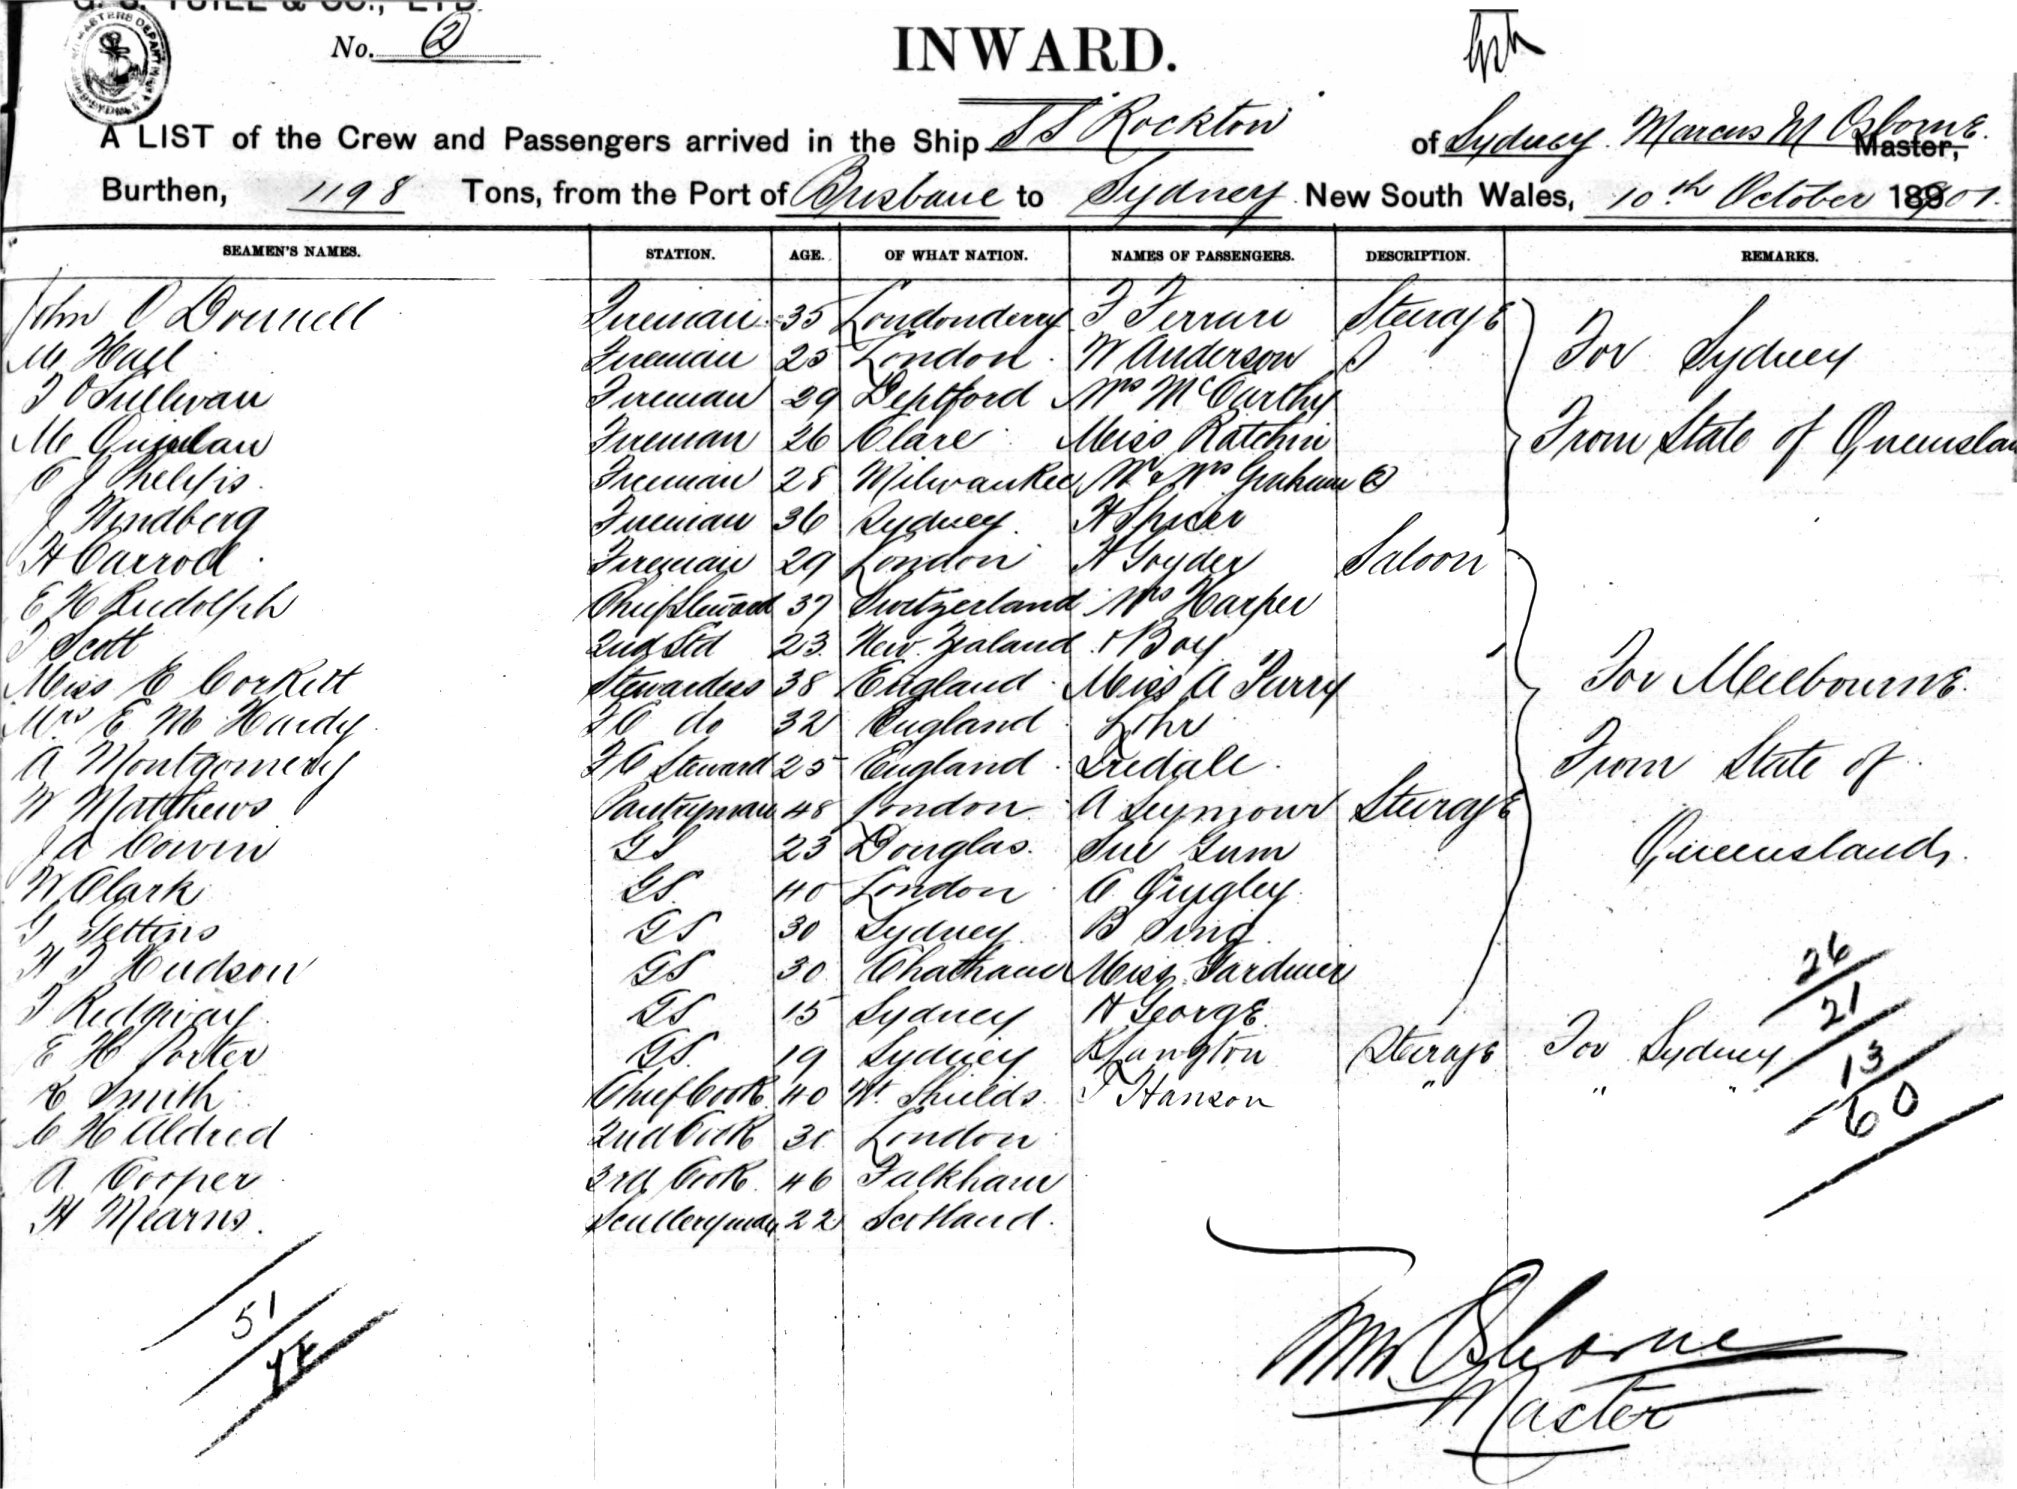 No. 2
INWARD.
A LIST of the Crew and Passengers arrived in the Ship SS Rockton of Sydney. Marcus M Osborne. Master,
Burthen, 1198 Tons, from the Port of Brisbane to Sydney New South Wales, 10th October 1901.
SEAMEN'S NAMES. STATION. AGE. OF WHAT NATION. NAMES OF PASSENGERS. DESCRIPTION. REMARKS.
John O Donnell Fireman 35 Londonderry F Ferrari Steerage
M Hall Fireman 25 London W Anderson For Sydney
J O Sullivan Fireman 29 Deptford Mrs McCarthy
M Quinlan Fireman 26 Clare Miss Ratchin From State of Queensland
C J Phelps Fireman 28 Milwaukee Mr & Mrs Graham
J Windberg Fireman 36 Sydney H Spicer
H Carroll Fireman 29 London H Goyder Saloon
E H Rudolph Chief Steward 37 Switzerland Mrs Harper
T Scott 2nd Std 23 New Zealand & Boy
Miss E Corkett Stewardess 38 England Miss A Furry For Melbourne.
Mrs E M Hardy do 32 England Lohr
A Montgomery Steward 25 England Iredale From State of
W Matthews Pantryman 48 London A Seymour Steerage
J A Cowin GS 23 Douglas. Sue Gum Queensland.
W Clark GS. 40 London
G Gettins GS 30 Sydney B Sing 26
H J Hudson GS 30 Chatham Miss Gardiner
T Ridgway GS 15 Sydney H George 21
E H Porter GS. 19 Sydney K Langton Steerage For Sydney 13
Smith Chief Cook 40 Nt. Shields T Hanson " " "
C H Aldred 2nd Cook 31 London 60
A Cooper 3rd Cook 46 Falkham
H Mearns. Sculleryman 22 Scotland.
51
Osborne
Master